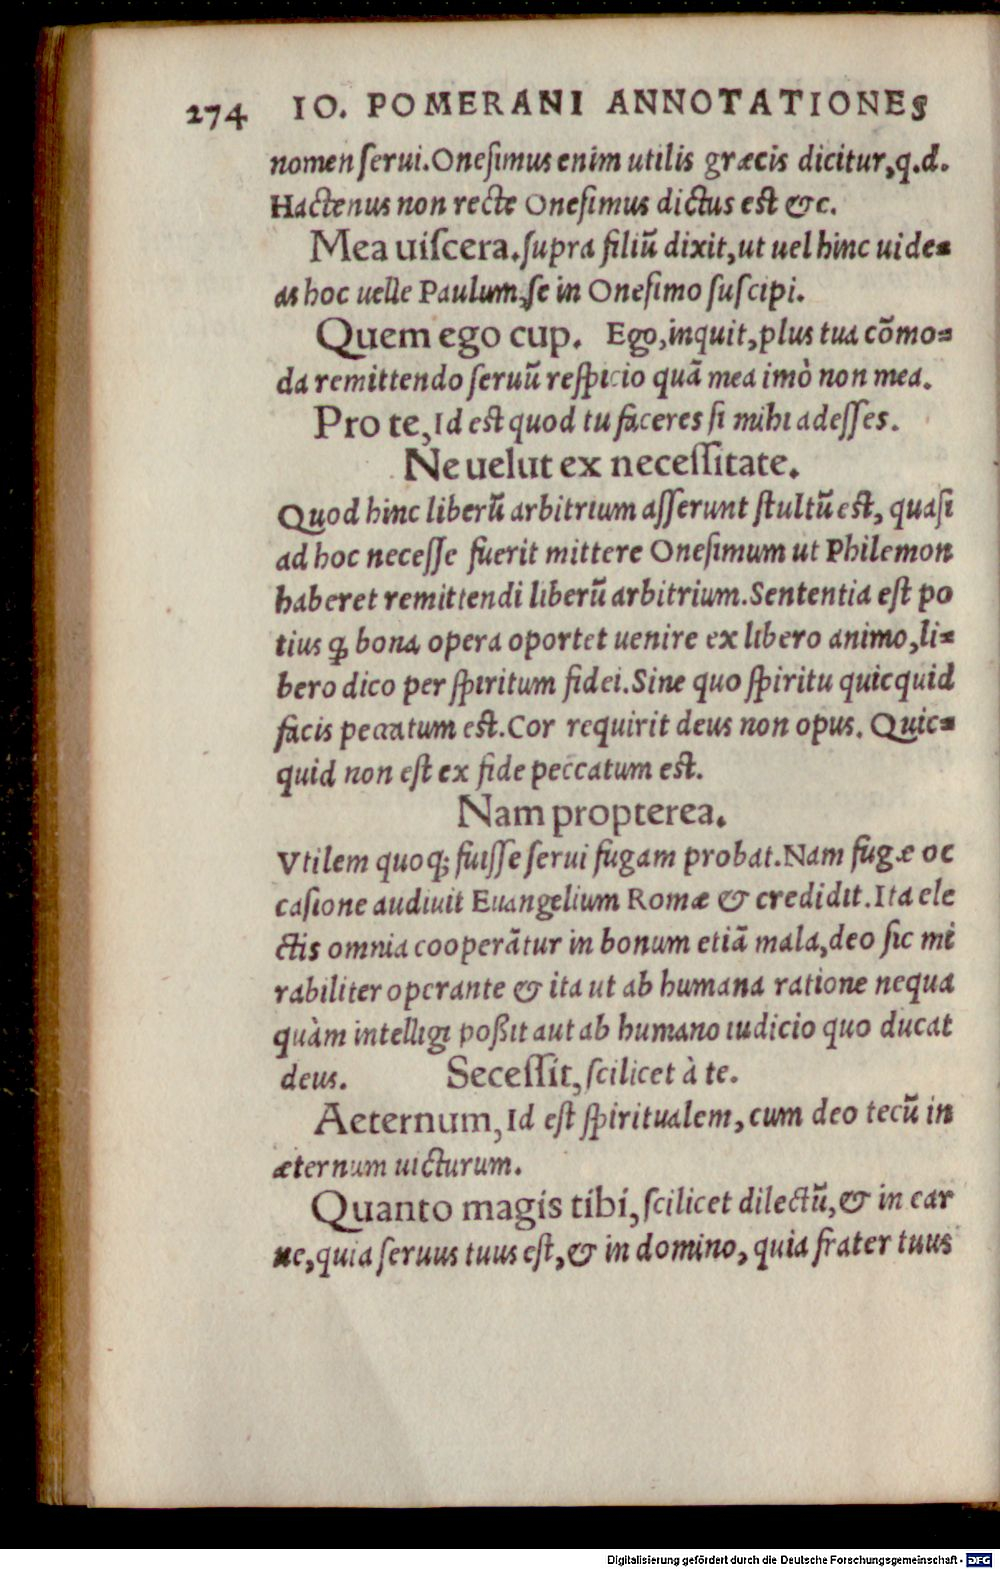 274 IO. POMERANI ANNOTATIONES
nomen ſerui. Oneſimus enim utilis græcis dicitur, q.d.
Hactenus non recte Oneſimus dictus est &c.
Mea uiſcera. ſupra filiũ dixit, ut uel hinc uide=
as hoc uelle Paulum, ſe in Oneſimo ſuſcipi.
Quem ego cup. Ego, inquit, plus tua cõmo=
da remittendo ſeruũ reſpicio quã mea imò non mea.
Pro te, Id est quod tu faceres ſi mihi adeſſes.
Ne uelut ex neceſſitate.
Quod hinc liberũ arbitrium aſſerunt ſtultũ eſt, quaſi
ad hoc neceſſe fuerit mittere Oneſimum ut Philemon
haberet remittendi liberũ arbitrium. Sententia eſt po
tius ꝙ bona opera oportet uenire ex libero animo, li=
bero dico per ſpiritum fidei. Sine quo ſpiritu quicquid
facis peccatum eſt. Cor requirit deus non opus. Quic=
quid non eſt ex fide peccatum eſt.
Nam propterea.
Vtilem quoq; fuiſſe ſerui fugam probat. Nam fugæ oc
caſione audiuit Euangelium Romæ & credidit. Ita ele
ctis omnia cooperãtur in bonum etiã mala, deo ſic mi
rabiliter operante & ita ut ab humana ratione nequa
quàm intelligi poßit aut ab humano iudicio quo ducat
deus. Seceſſit, ſcilicet à te.
Aeternum, Id eſt ſpiritualem, cum deo tecũ in
æternum uicturum.
Quanto magis tibi, ſcilicet dilectũ, & in car
ne, quia ſeruus tuus eſt, & in domino, quia frater tuus
Digitalisierung gefördert durch die Deutsche Forschungsgemeinschaft - DFG